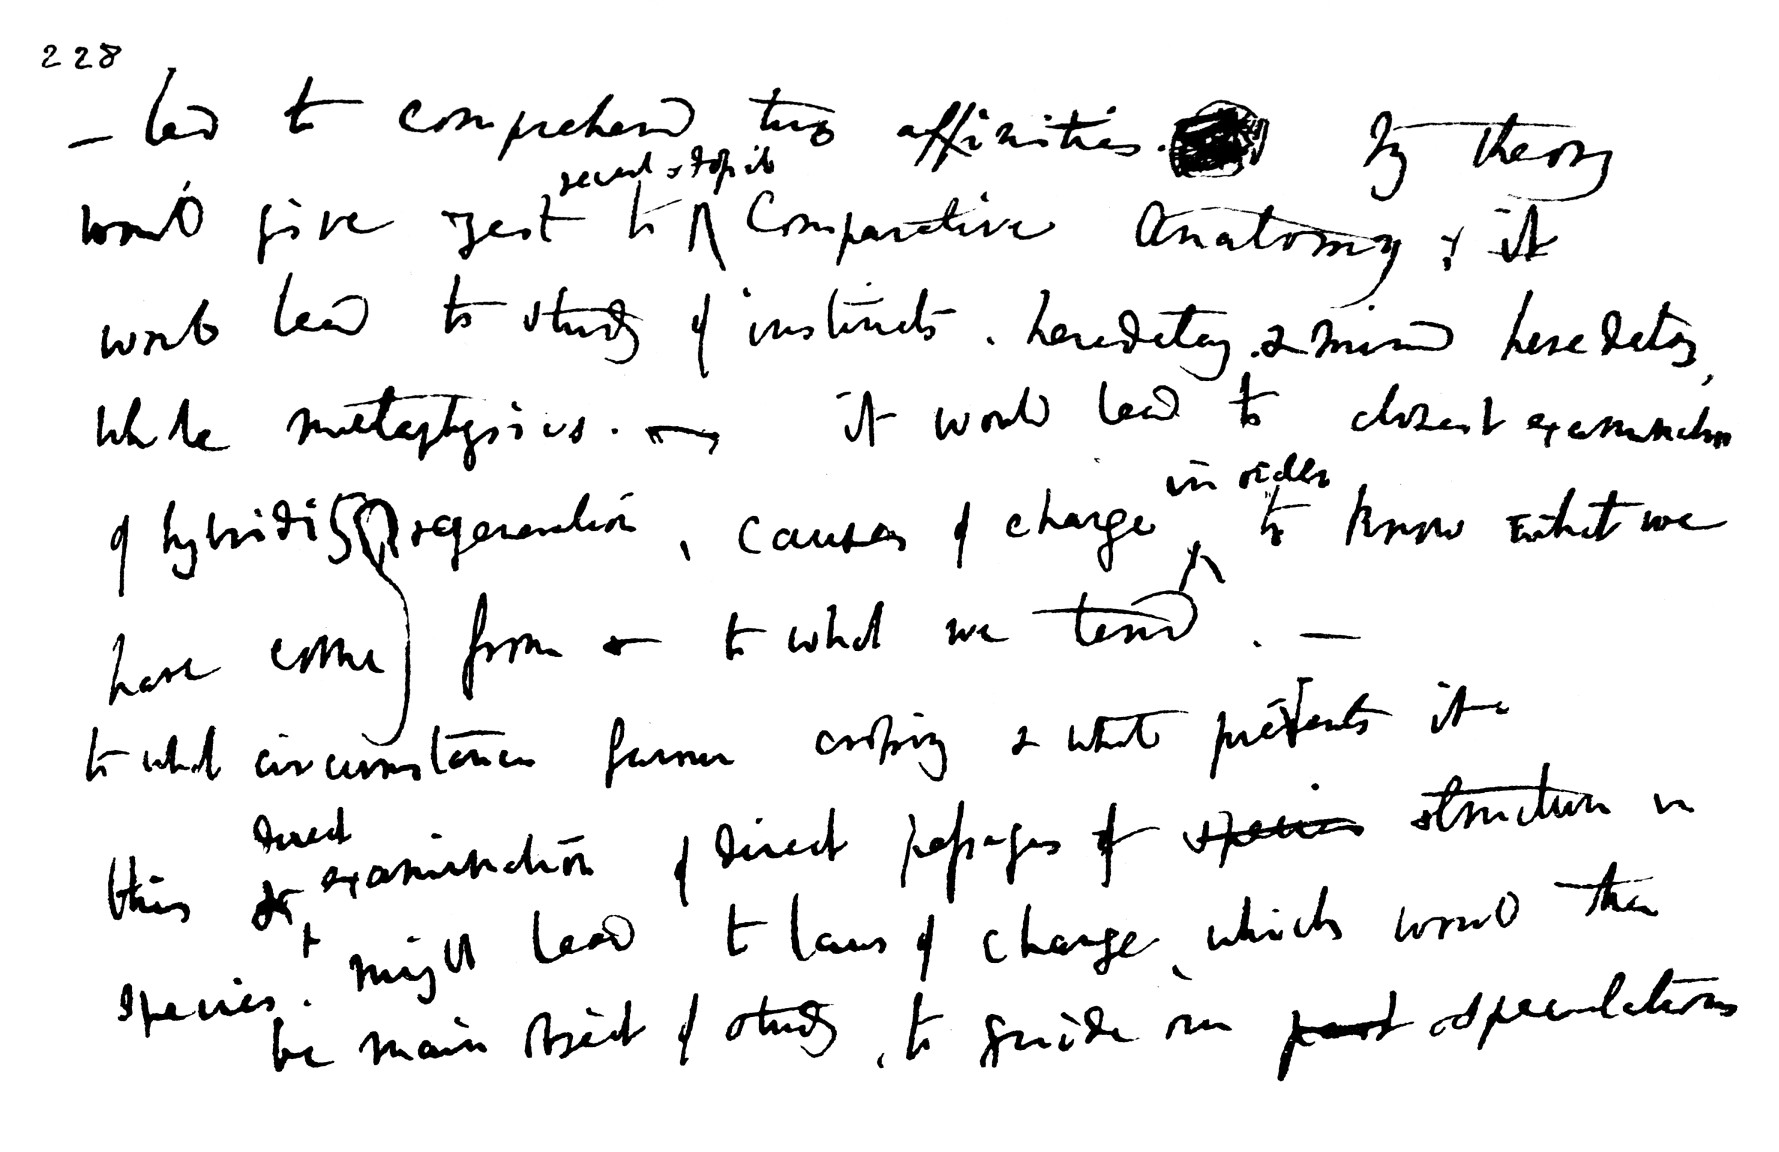 228
— led to comprehend true affinities. My theory
recent & fossil
would give zest to Comparative Anatomy; it
would lead to study of instincts, heredetary & mind heredetary,
whole metaphysics. — it would lead to closest examination
in order
of hybridity regeneration, causes of change to know what we
have come from & to what we tend. —
to what circumstances favour crossing & what prevents it
direct
this & examination of direct passages of species structure in
species. might lead to laws of change, which would then
be main object of study, to guide our past speculations